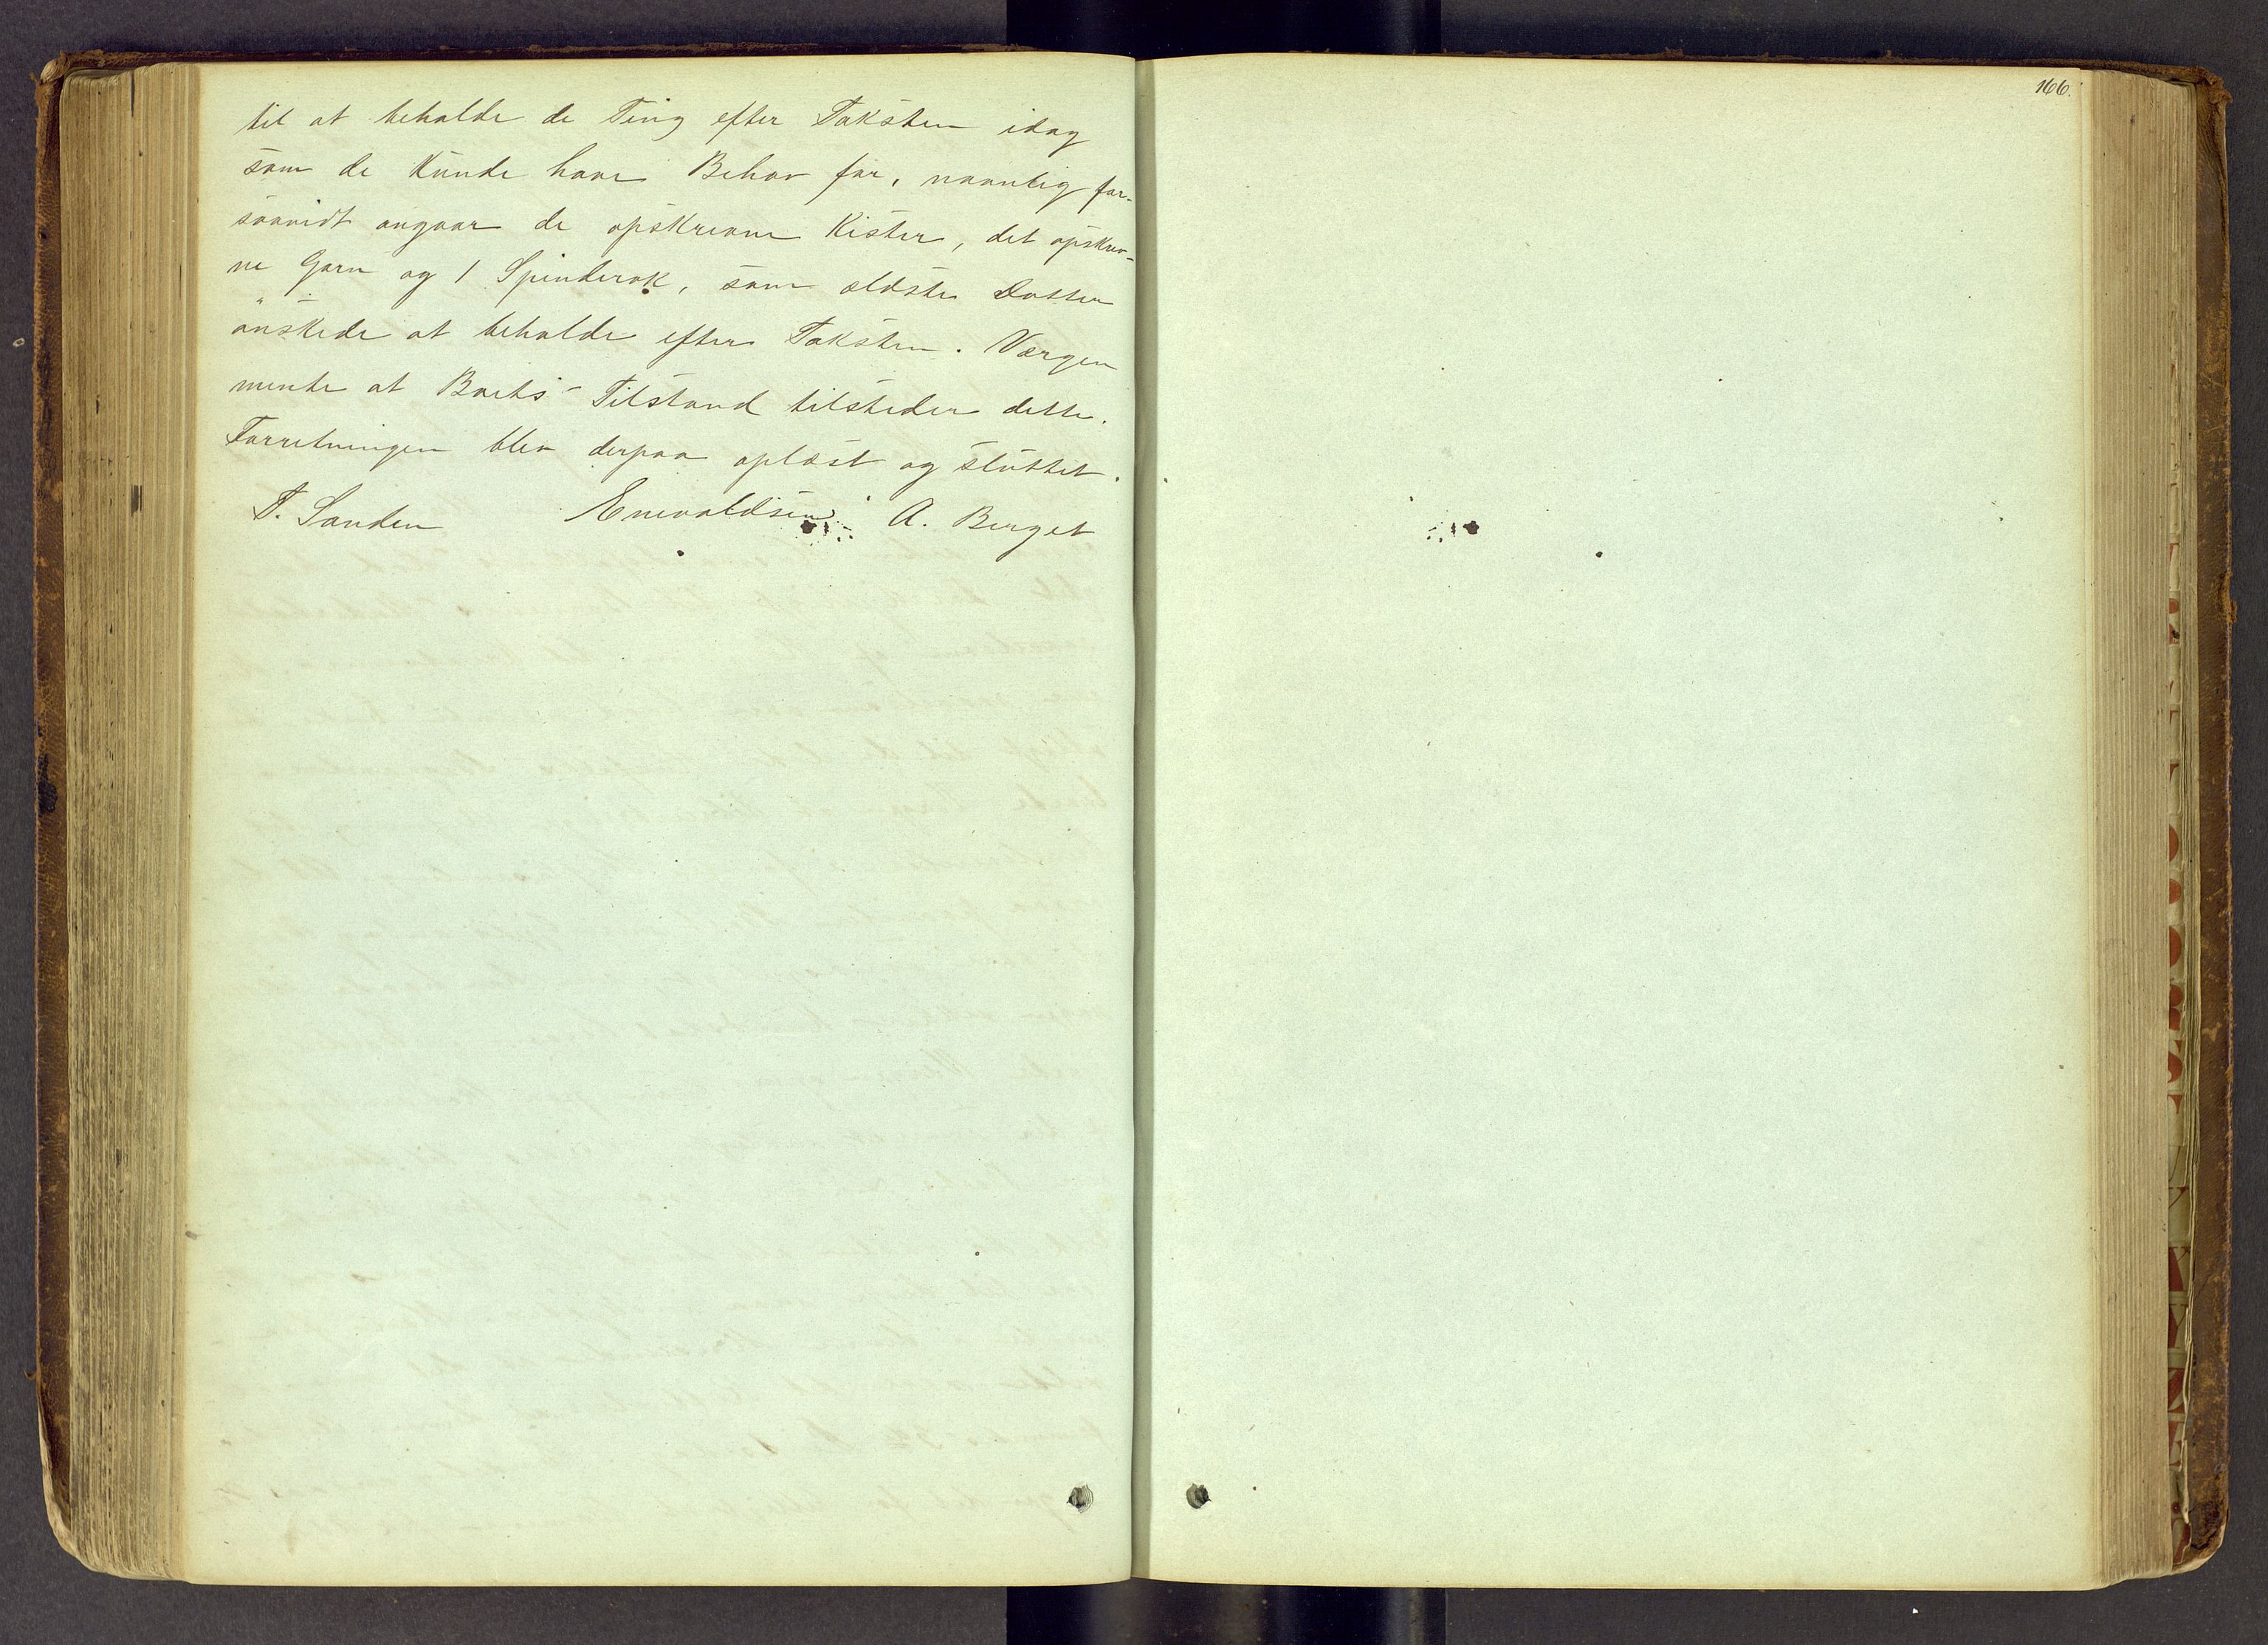 til at beholde de Ting efter Taksten idag
som de kunde have Behov for, navnlig for-
saavidt angaar de opskrevne Kister, det opskrev-
ne Garn og 1 Spinderok, som ældste Datter
ønskede at beholde efter Taksten. Værgen
mente at Boets Tilstand tilsteder dette.
Forretningen blev derpaa oplæst og sluttet.
T. Sanden Enevoldsen A. Berget
166.